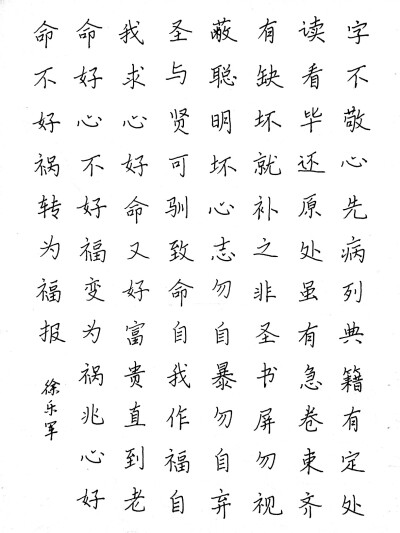 字不敬心先病列典籍有定处
读看毕还原处虽有急卷束齐
有缺坏就补之非圣书屏勿视
蔽聪明坏心志勿自暴勿自弃
圣与贤可驯致命自我作福自
我求心好命又好富贵直到老
命好心不好福变为祸兆心好
命不好祸转为福报
徐乐军